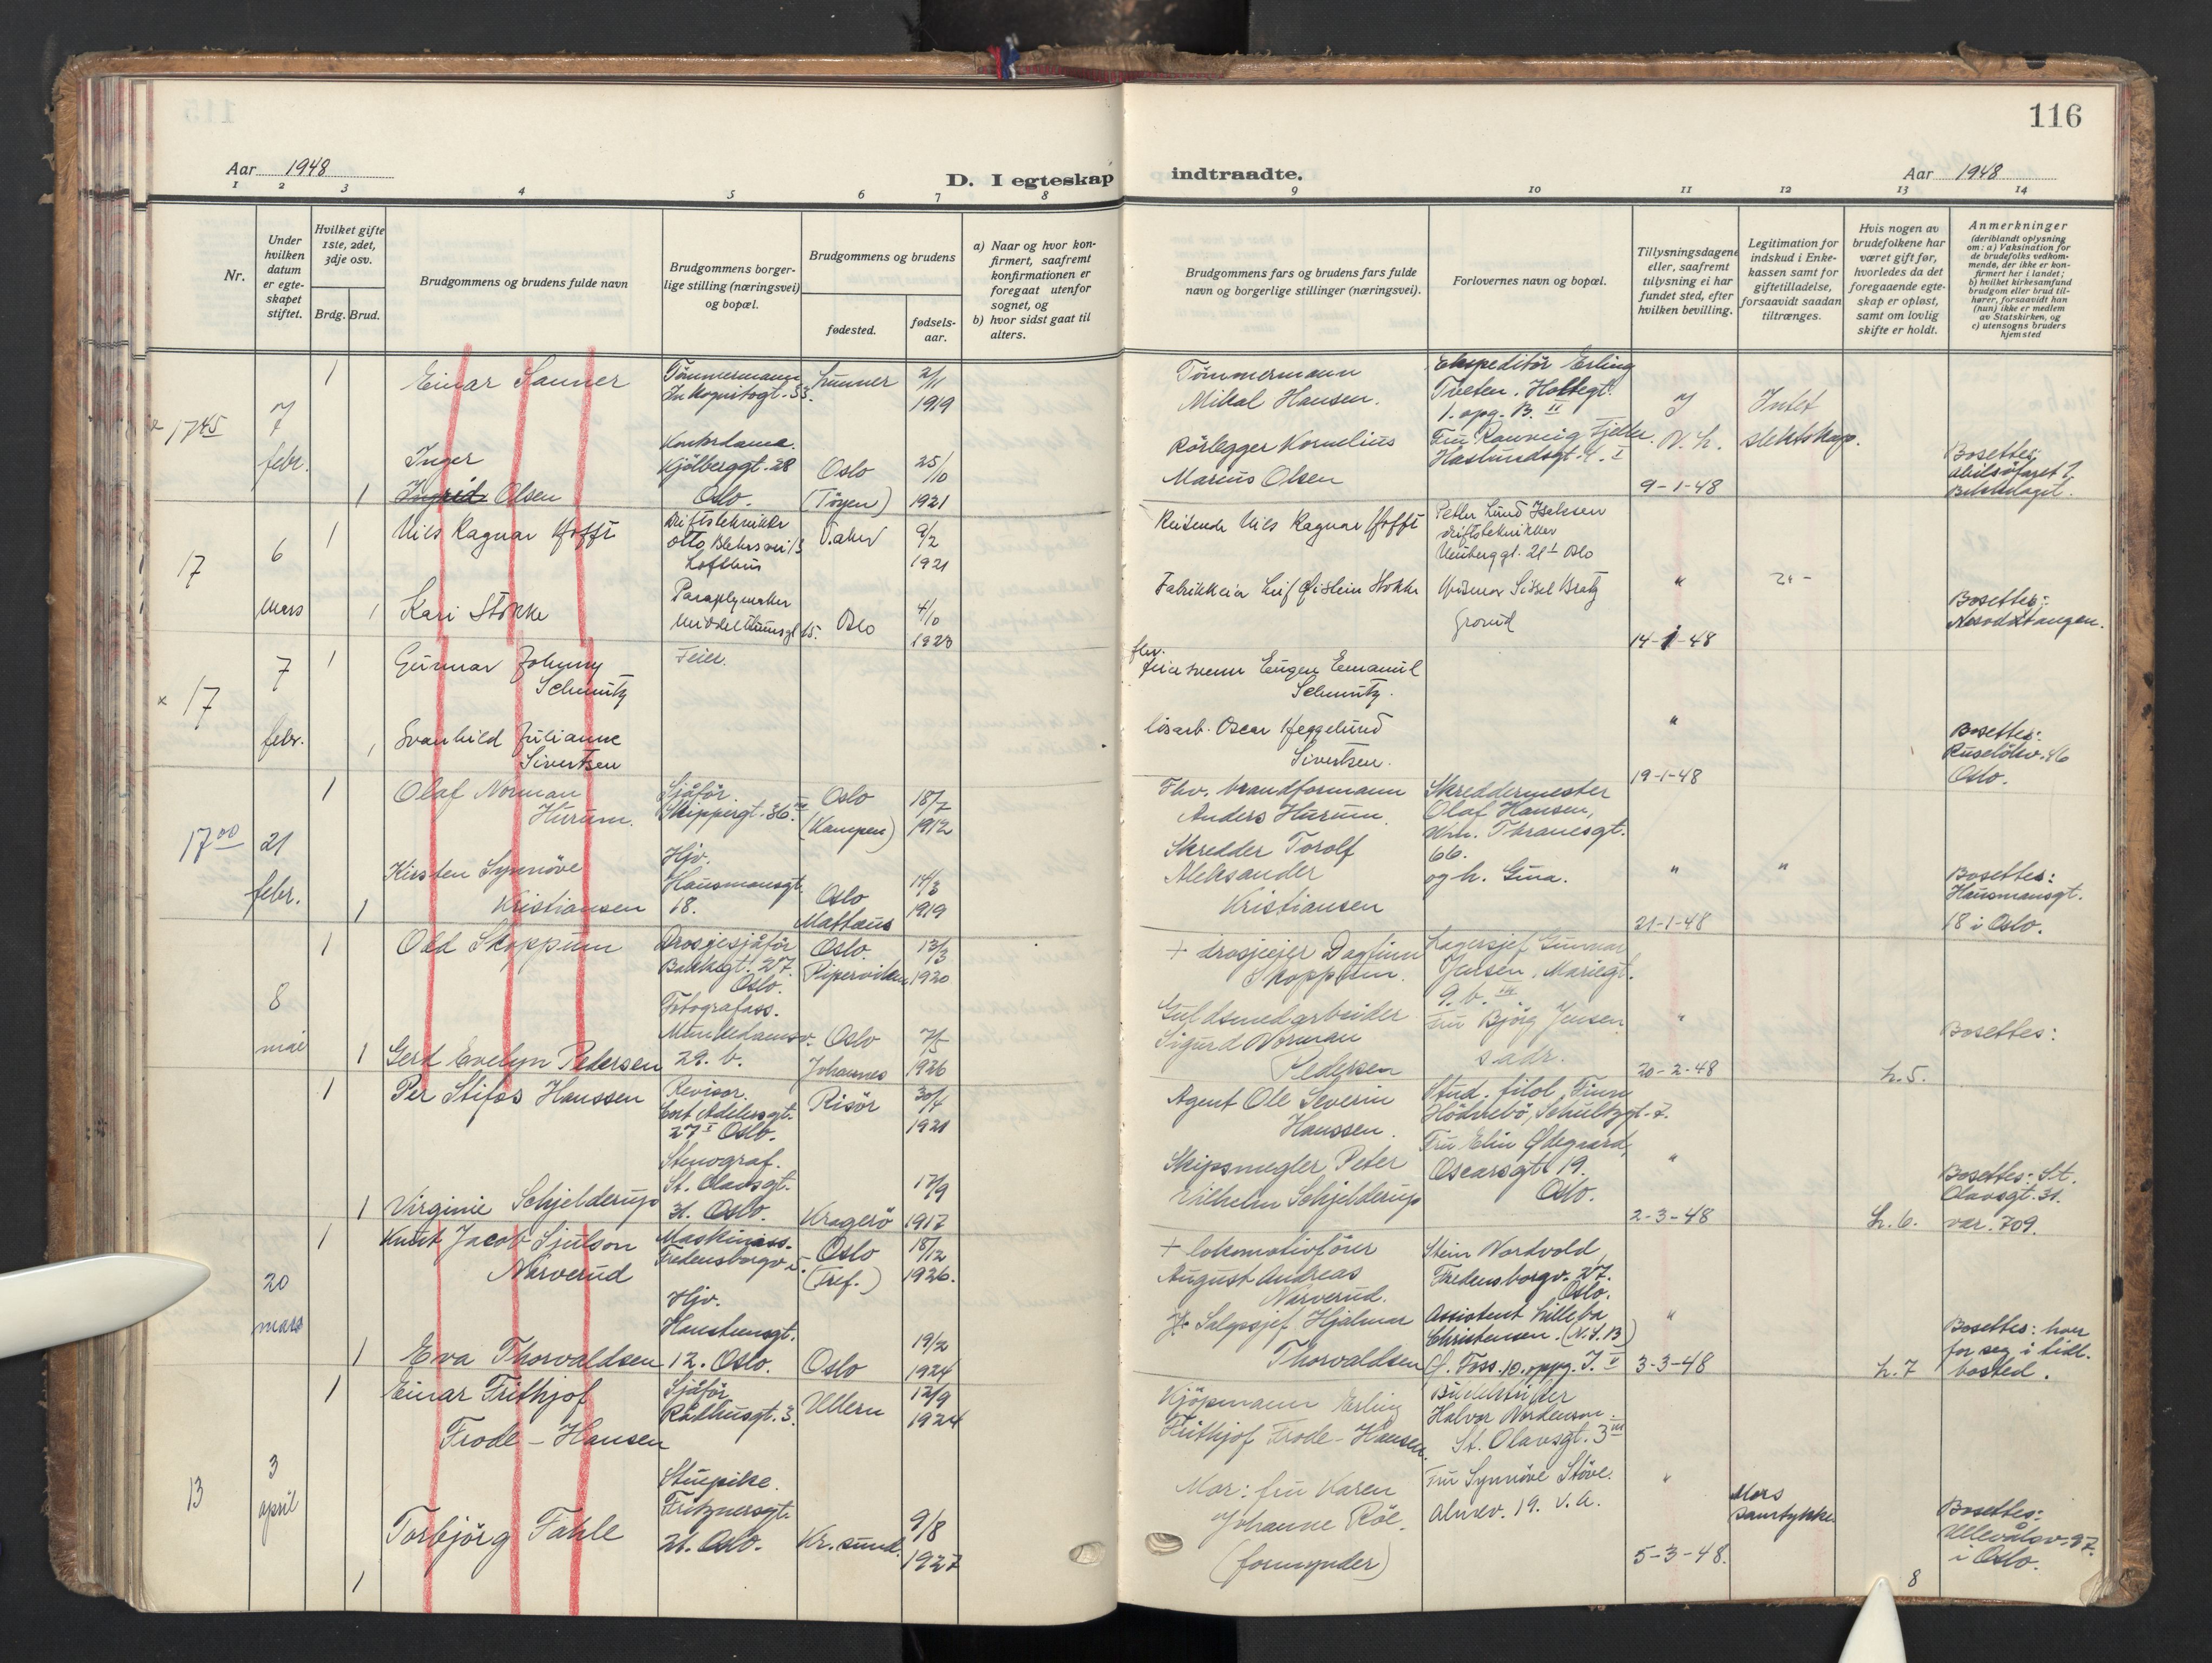 116
Aar 1948
D. I egteskap indtraadte.
Aar 1948
1 2 3 4 5 6 7 8 9 10 11 12 13 14
Nr.
Under
hvilken
datum
er egte-
skapet
stiftet.
Hvilket gifte
1ste, 2det,
3dje osv.
Brdg. Brud.
Brudgommens og brudens fulde navn
Brudgommens borger-
lige stilling (næringsvei)
og bopæl.
Brudgommens og brudens
fødested.
fødsels-
aar.
a) Naar og hvor kon-
firmert, saafremt
konfirmationen er
foregaat utenfor
sognet, og
b) hvor sidst gaat til
alters.
Brudgommens fars og brudens fars fulde
navn og borgerlige stillinger (næringsvei).
Forlovernes navn og bopæl.
Tillysningsdagene
eller, saafremt
tillysning ei har
fundet sted, efter
hvilken bevilling.
Legitimation for
indskud i Enke-
kassen samt for
giftetilladelse,
forsaavidt saadan
tiltrænges.
Hvis nogen av
brudefolkene har
været gift før,
hvorledes da det
foregaaende egte-
skap er opløst,
samt om lovlig
skifte er holdt.
Anmerkninger
(deriblandt oplysning
om: a) Vaksination for
de brudefolks vedkom-
mende, der ikke er kon-
firmert her i landet;
b) hvilket kirkesamfund
brudgom eller brud til-
hører, forsaavidt han
(hun) ikke er medlem
av Statskirken, og
c) utensogns bruders
hjemsted
17 45
7
febr.
1
Einar Sanner
Tømmermann
Lunner
2/11
1919
Tømmermann
Mikal Hansen.
Ekspeditør Erling
Tveten, Holtegt.
1. opg. B. II
Intet
slektskap.
Inger
Ingrid Olsen
1
Kontordame.
Kjølberggt. 28
Oslo.
Oslo
(Tøyen)
25/10
1921
Rørlegger Kornelius
Marius Olsen
9-1-48
Bosettes:
17
6
mars
1
Nils Ragnar Hofft
Driftstekniker
Lofthus
V. aker
9/2
1921
Reisende Nils Ragnar Hofft
Petter Lund Isaksen
driftstekniker
Oslo
1
Kari Stokke
Paraplymaker
Middelthunsgt 15.
Oslo
4/10
1923
Fabrikkeier Leif Øistein Stokke
Grorud
"
14-1-48
Bosettes:
Nesoddtangen.
x 17
7
febr.
1
Gunnar Johnny
Schmitz
Feier.
feiersvenn Eugen Emanuel
Schmitz.
1
Svanhild Julianne
Sivertsen
løsarb. Oscar Heggelund
Sivertsen.
"
19-1-48
Bosettes:
Ruseløkv. 46
Oslo.
17 00
21
febr.
1
Olaf Norman
Hurum.
Sjåfør
Skippergt. 36. IV
Oslo
(Kampen)
18/7
1912
Fhv. brandformann
Anders Hurum.
Skreddermester
Olaf Hansen,
Wm. Thranesgt.
66.
og h. Gina.
1
Kirsten Synnöve
Kristiansen
Hjv.
Hausmansgt.
18.
Oslo
Mattæus
14/3
1919
Skredder Torolf
Aleksander
Kristiansen
"
"
21-1-48
Bosettes:
Hausmansgt.
18 i Oslo.
8
mai
1
Odd Skoppum
Drosjesjåfør
Bakkegt. 27.
Oslo.
Oslo.
Piperviken
13/3
1920
+ drosjeeier Dagfinn
Skoppum.
Lagersjef Gunnar
Jensen, Mariegt.
9. b. III
Fru Bjørg Jensen
s. adr.
1
Gerd Evelyn Pedersen
Fotografass.
Munkedamsv.
29. b.
Oslo
Johannes
7/5
1926
Guldsmedarbeider
Sigurd Norman
Pedersen
"
20-2-48
L. 5.
Bosettes:
1
Per Stifos Hanssen
Revisor.
Cort Adelersgt.
27 I Oslo.
Risör
30/4
1921
Agent Ole Severin
Hanssen.
Stud. filol. Finn
Høddebø, Schultzgt. 7.
Fru Elin Ødegaard,
Oscarsgt. 19.
Oslo.
1
Virginie Schjelderup
Stenograf.
St. Olavsgt.
31. Oslo.
Kragerö
17/9
1917
Skipsmegler Peter
Vilhelm Schjelderup
"
2-3-48
L. 6.
Bosettes: St.
Olavsgt. 31.
var. 709.
20
mars
1
Knut Jacob Sjulson
Narverud
Maskinass.
Fredensborgv.
Oslo
(Tref.)
18/12
1926.
+ lokomotivfører
August Andreas
Narverud.
Stein Nordvold,
Fredensborgv. 27.
Oslo.
Assistent Lilleba
Christensen.
1
Eva Thorvaldsen
Hjv.
12. Oslo.
Oslo
19/2
1924
Salgssjef Hjalmar
Thorvaldsen
"
3-3-48
L. 7
Bosettes: hver
for seg i tidl.
bosted.
13
3
april
1
Einar Frithjof
Frode - Hansen
Sjåfør
Rådhusgt. 3.
Ullern
12/9
1924
Kjøpmann Erling
Frithjof Frode - Hansen.
Halvor Nordenson.
St. Olavsgt. 3 III
1
Torbjörg Fahle
Stuepike.
Fritznersgt.
21. Oslo.
Kr. sund.
9/8
1927
Mor: fru Karen
Johanne Röe.
(formynder)
Fru Synnöve Stöve.
Alnev. 19. V. A.
"
5-3-48.
Mors
samtykke.
8
Bosettes:
Ullevålsv. 97.
i Oslo.